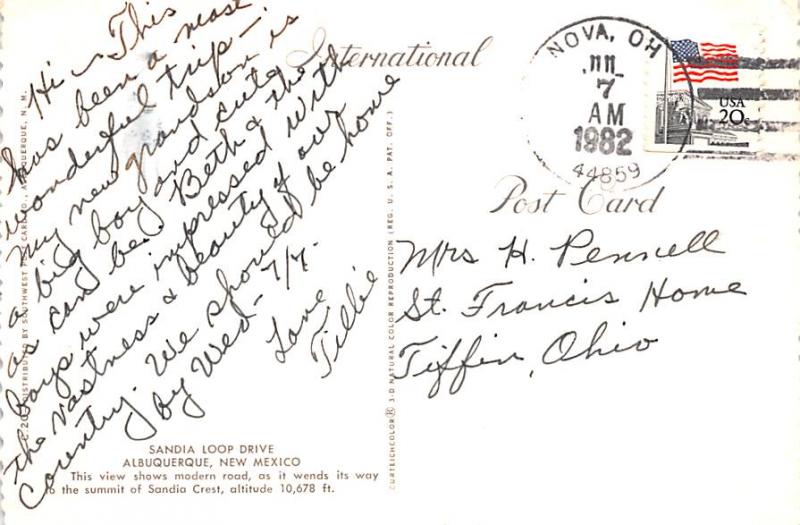 Hi ~ This
has been a most
wonderful trip -
my new grandson is
a big boy and cute
as can be. Beth & the
boys were impressed with
the vastness & beauty of our
Country. We should be home
by Wed - 7/7.
Love
Tillie
SANDIA LOOP DRIVE
ALBUQUERQUE, NEW MEXICO
This view shows modern road, as it wends its way
to the summit of Sandia Crest, altitude 10,678 ft.
DISTRIBUTED BY SOUTHWEST POST CARD CO., ALBUQUERQUE, N. M.
CURTEICHCOLOR® 3-D NATURAL COLOR REPRODUCTION (REG. U. S. A. PAT. OFF.)
International
Post Card
NOVA, OH
JUL
7
AM
1982
44859
USA
20c
Mrs H. Pennell
St. Francis Home
Tiffin, Ohio